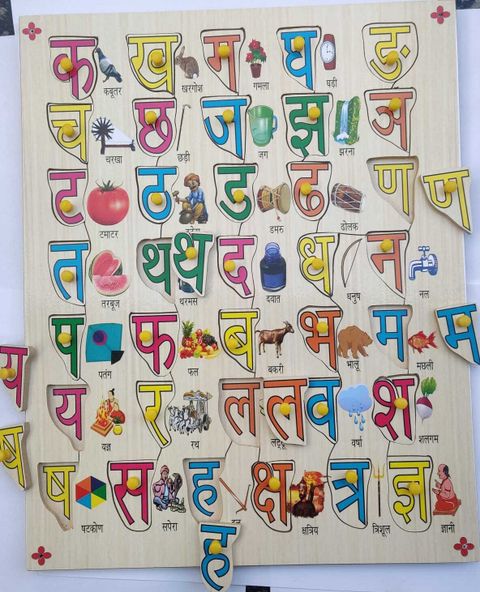 क ख ग घ ङ
कबूतर खरगोश गमला घड़ी
च छ ज झ ञ
चरखा छड़ी जग झरना
ट ठ ड ढ ण ण
टमाटर डमरु ढोलक
त थ थ द ध न
तरबूज थरमस दवात धनुष नल
प फ ब भ म म
पतंग फल बकरी भालू मछली
य य र ल ल व श
यज्ञ रथ लड्डू वर्षा शलगम
ष ष स ह क्ष त्र ज्ञ
षटकोण सपेरा क्षत्रिय त्रिशूल ज्ञानी
ह